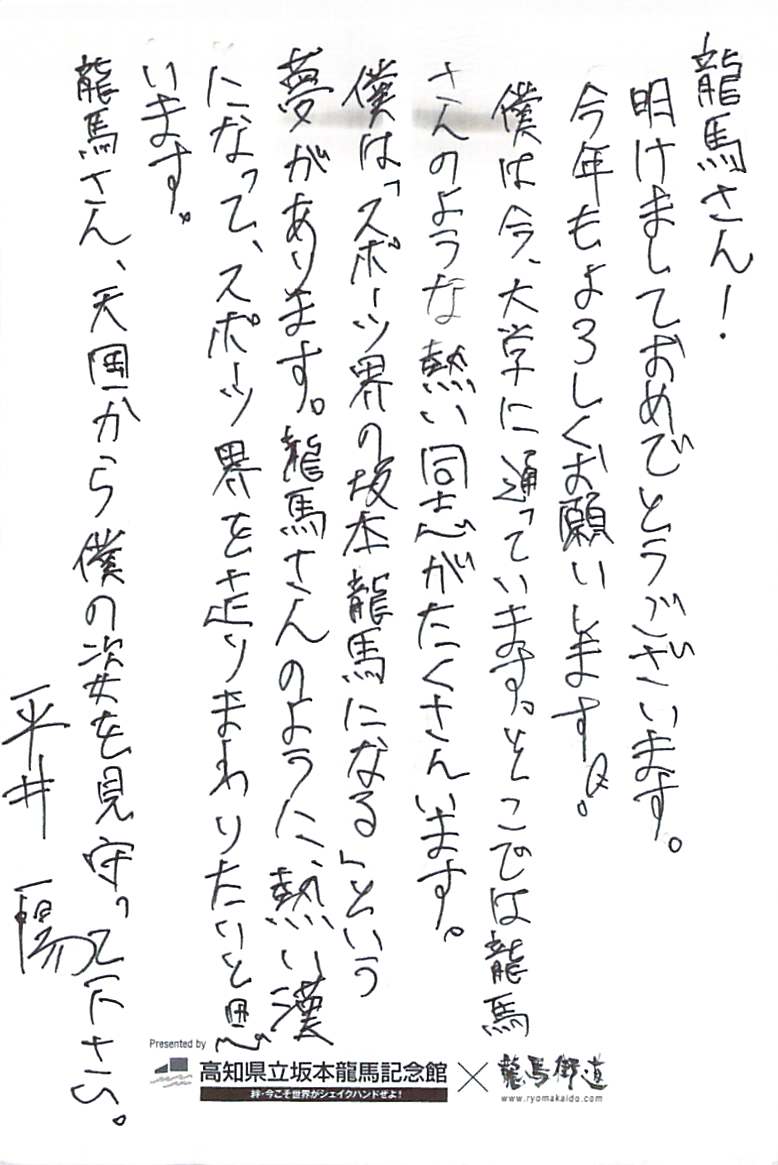 龍馬さん！
明けましておめでとうございます。
今年もよろしくお願いします。
僕は今、大学に通っています。そこでは龍馬
さんのような熱い同志がたくさんいます。
僕は「スポーツ界の坂本龍馬になる」という
夢があります。龍馬さんのように、熱い漢
になって、スポーツ界を走りまわりたいと思
います。
龍馬さん、天国から僕の姿を見守って下さい。
平井 陽
Presented by
高知県立坂本龍馬記念館
絆・今こそ世界がシェイクハンドせよ！
×
龍馬街道
www.ryomakaido.com